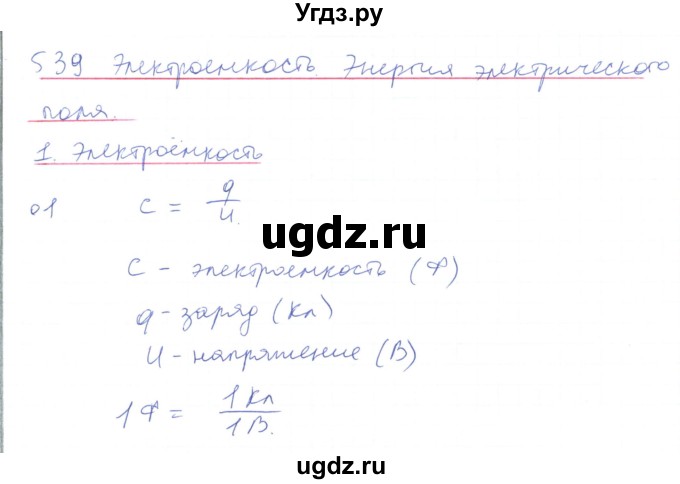 Угдз.ру
§39 Электроемкость. Энергия электрического
поля.
1. Электроёмкость
01 C = q/U.
C - электроемкость (Ф)
ugdz.ru
q - заряд (Кл)
U - напряжение (В)
1Ф = 1Кл/1В.
ugdz.ru